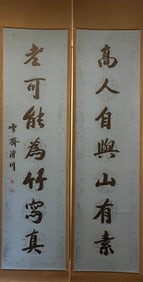 高人自與山有素
老可能為竹寫真
雪齋溥伒